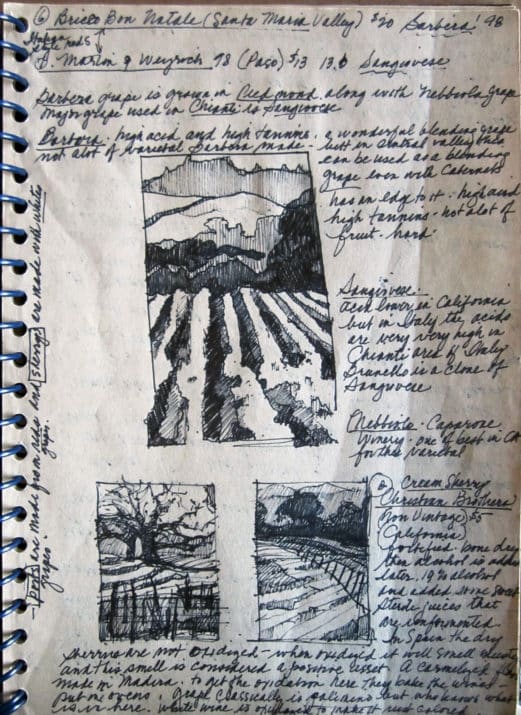 ⑥ Bricco Bon Natale (Santa Maria Valley) $20 Barbera '98
style reds
Martin & Weyrich 98 (Paso) $13 13.0 Sangiovese
Barbera grape is grown in Piedmont along with Nebbiola grape
Major grape used in Chianti is Sangiovese
Barbera - high acid and high tannins. a wonderful blending grape
not alot of varietal Barbera made -
but in Central valley
can be used as a blending
grape even with Cabernets
has an edge to it - high acid
high tannins - not alot of
fruit - hard
Sangiovese -
acid lower in California
but in Italy the acids
are very very high in
Chianti area of Italy
Brunello is a clone of
Sangiovese
Nebbiolo - Caparone
Winery - one of best in CA
for this varietal
Cream Sherry
Christian Brothers
(Non Vintage) $5
(California)
fortified - bone dry
then alcohol is added
later. 19% alcohol
and added some sweet
juices that
are unfermented
In Spain the dry
sherries are not oxidized - when oxidized it will smell
and this smell is considered a positive
A Carmelized
made in Madeira. to get the oxidation here they bake the wines
put on ovens. grape classically is palimino but who knows what
is in here. white wine is oxidized to make it rust colored
- ports are made from reds and sherrys are made with white
grapes -
grapes.